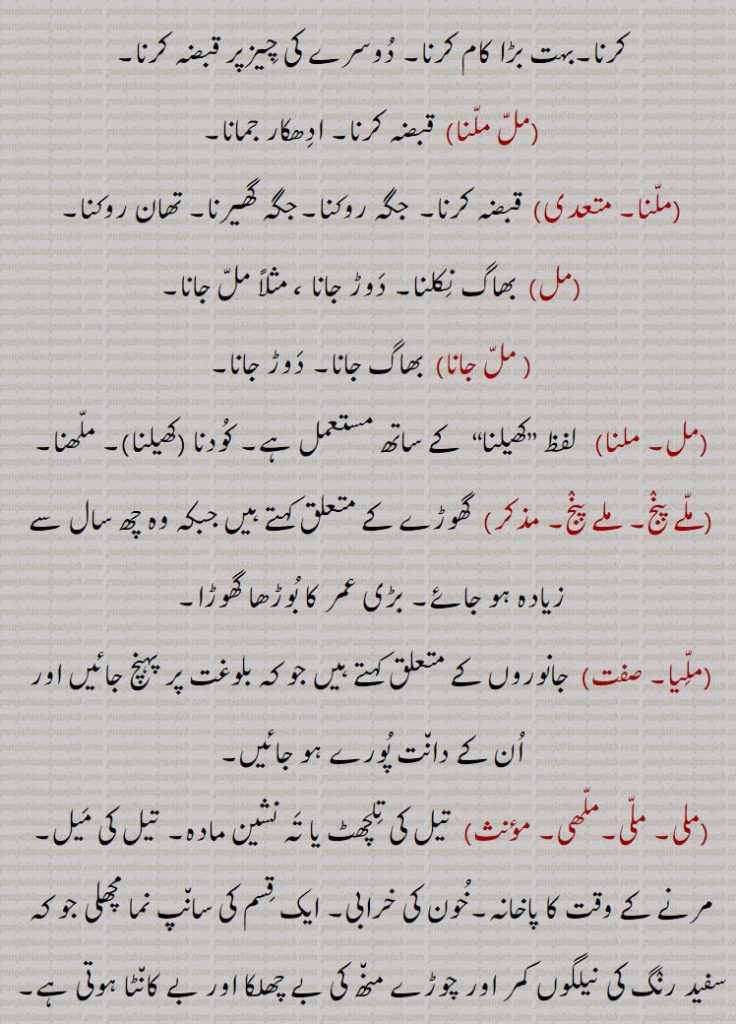 کرنا۔ بہت بڑا کام کرنا۔ دُوسرے کی چِیز پر قبضہ کرنا۔
(ملّ ملّنا) قبضہ کرنا۔ ادِھکار جمانا۔
(ملّنا۔ متعدی) قبضہ کرنا۔ جگہ روکنا۔ جگہ گھیرنا۔ تھان روکنا۔
(مل) بھاگ نِکلنا۔ دَوڑ جانا ، مثلاً ملّ جانا۔
( ملّ جانا) بھاگ جانا۔ دَوڑ جانا۔
(مل۔ ملنا) لفظ ”کھیلنا“ کے ساتھ مستعمل ہے۔ کوُدنا (کھیلنا)۔ ملّھنا۔
(ملّے پنٛج۔ ملے پنٛج۔ مذکر) گھوڑے کے متعلق کہتے ہیں جبکہ وہ چھ سال سے
زیادہ ہو جائے۔ بڑی عمر کا بُوڑھا گھوڑا۔
(ملّیا۔ صفت) جانوروں کے متعلق کہتے ہیں جو کہ بلوغت پر پہنچ جائیں اور
اُن کے دانٛت پُورے ہو جائیں۔
(ملی۔ ملّی۔ ملّھی۔ مؤنث) تیل کی تِلچھٹ یا تَہ نشین مادہ۔ تیل کی مَیل۔
مرنے کے وقت کا پاخانہ۔ خُون کی خرابی۔ ایک قِسم کی سانٛپ نما مچھلی جو کہ
سفید رنٛگ کی نیلگوں کمر اور چوڑے منٛھ کی بے چھلکا اور بے کانٛٹا ہوتی ہے۔